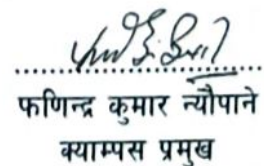 फणिन्द्र कुमार न्यौपाने
क्याम्पस प्रमुख